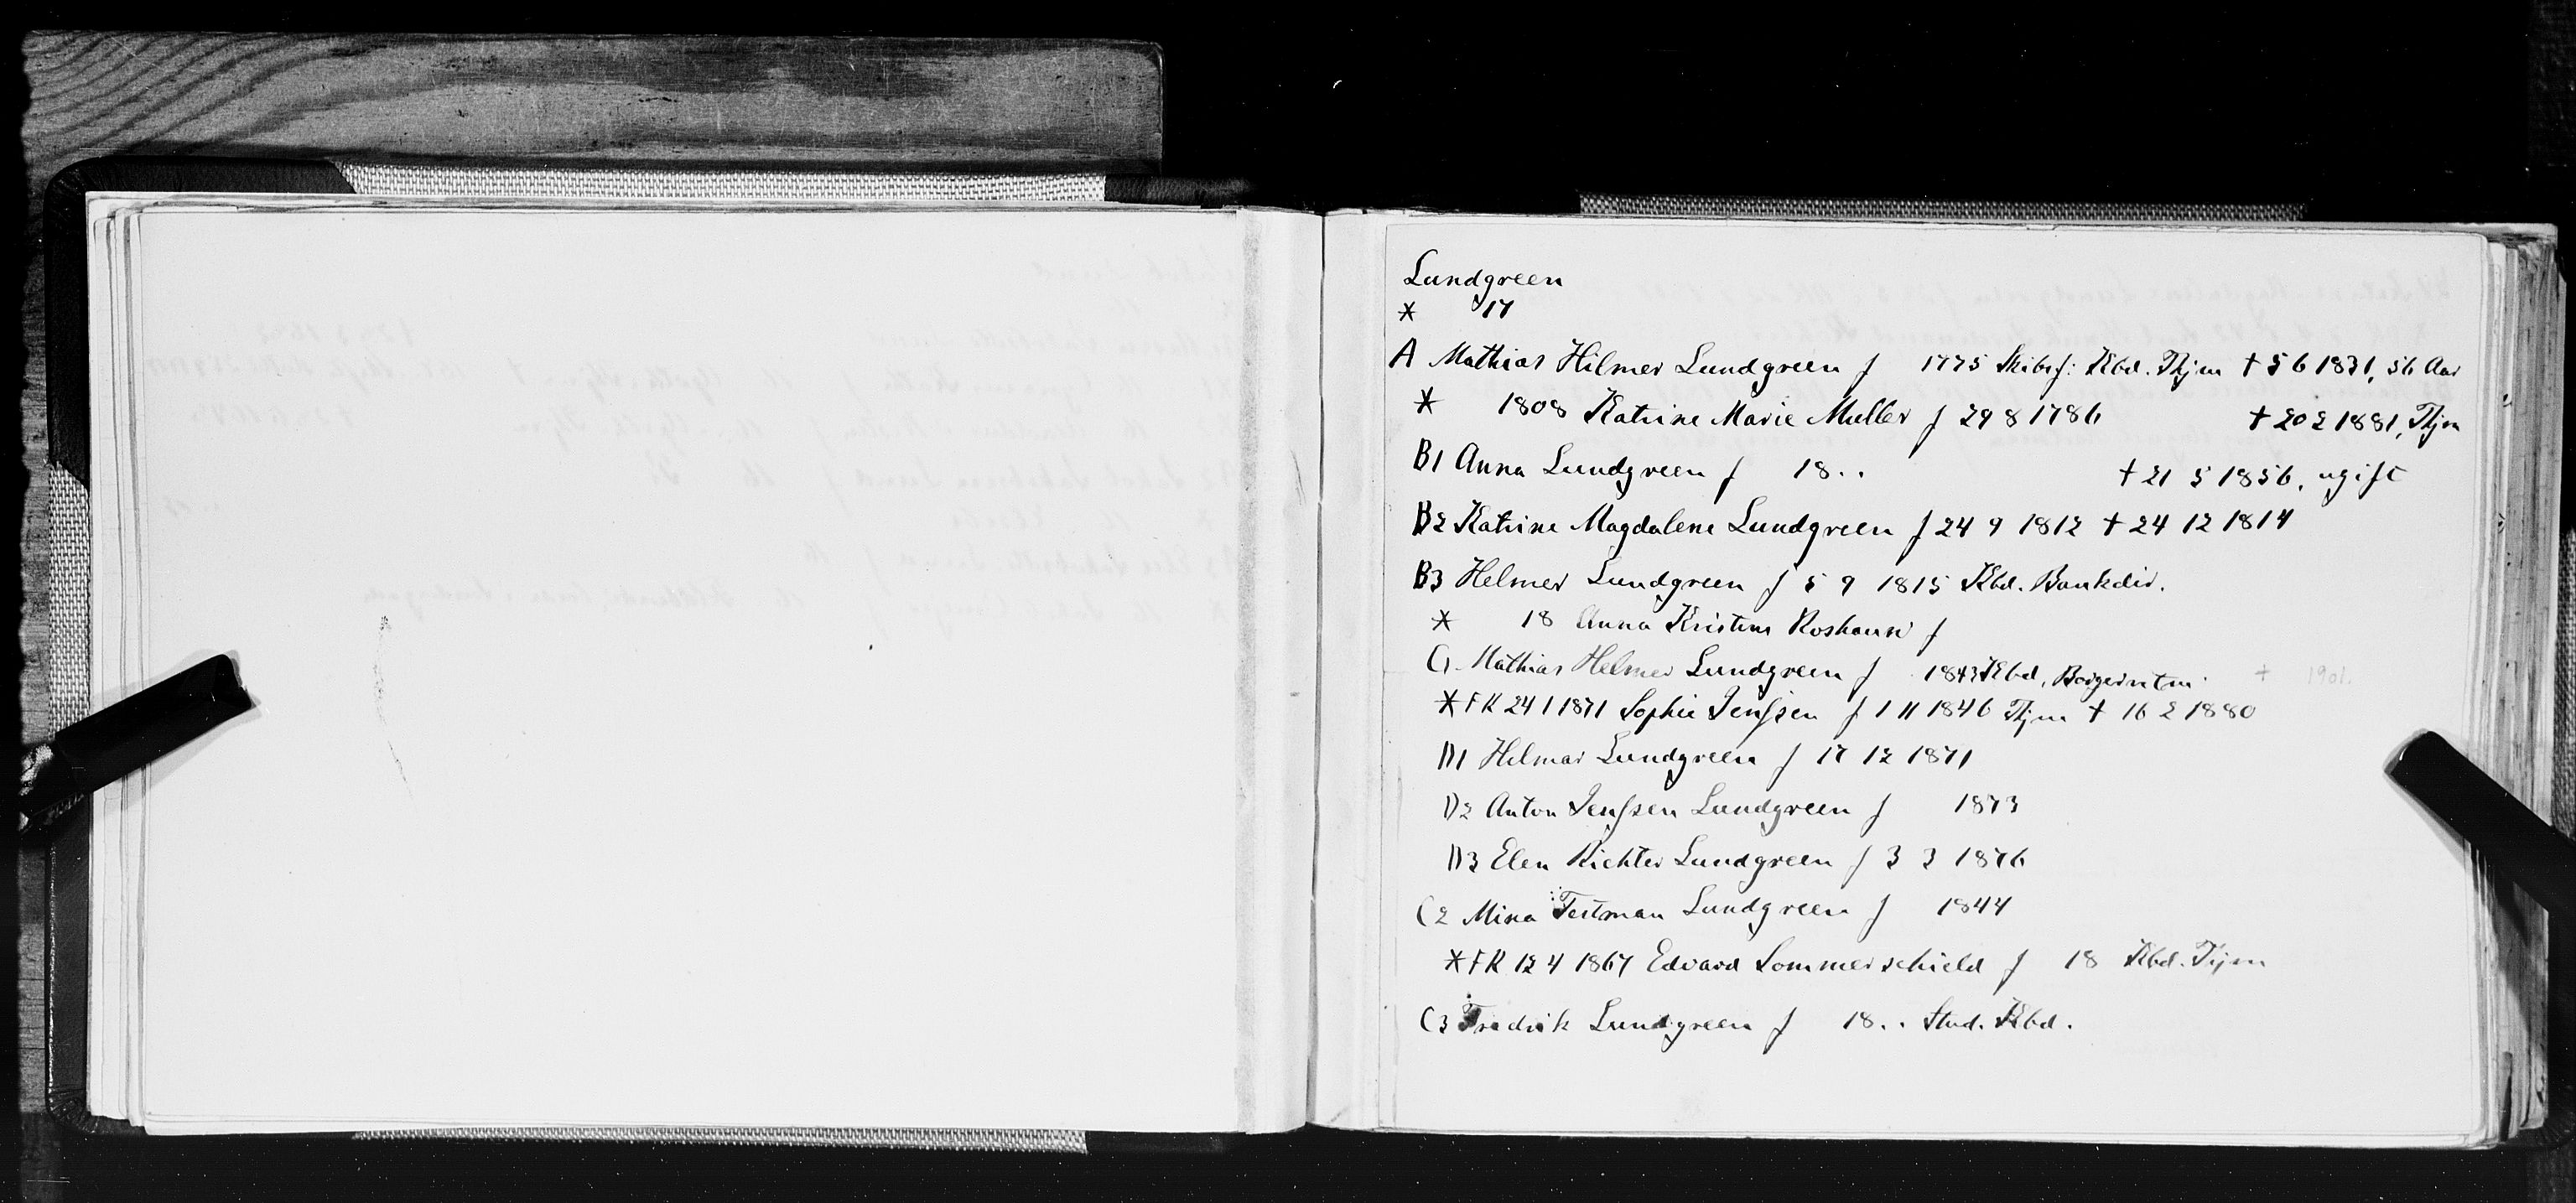 Lundgreen
* 17
A Mathias Hilmer Lundgreen f 1775 Skibsf: Kbd. Thjm † 5 6 1831, 56 Aar
* 1808 Katrine Marie Muller f 29 8 1786 † 20 2 1881, Thjm
B1 Anna Lundgreen f 18.. † 21 5 1856, ugift
B2 Katrine Magdalene Lundgreen f 24 9 1812 † 24 12 1814
B3 Helmer Lundgreen f 5 9 1815 Kbd. Bankdir.
* 18 Anna Kristine Roshauw f
C1 Mathias Helmer Lundgreen f 1843 Kbd, † 1901.
* FK 24 1 1871 Sophie Jenssen f 1 11 1846 Thjm † 16 2 1880
D1 Helmar Lundgreen f 17 12 1871
D2 Anton Jenssen Lundgreen f 1873
D3 Elen Richter Lundgreen f 3 3 1876
C2 Mina Testman Lundgreen f 1844
* FK 12 4 1867 Edvard Sommerschield f 18 Kbd. Thjm
C3 Fredrik Lundgreen f 18.. Stud. Kbd.